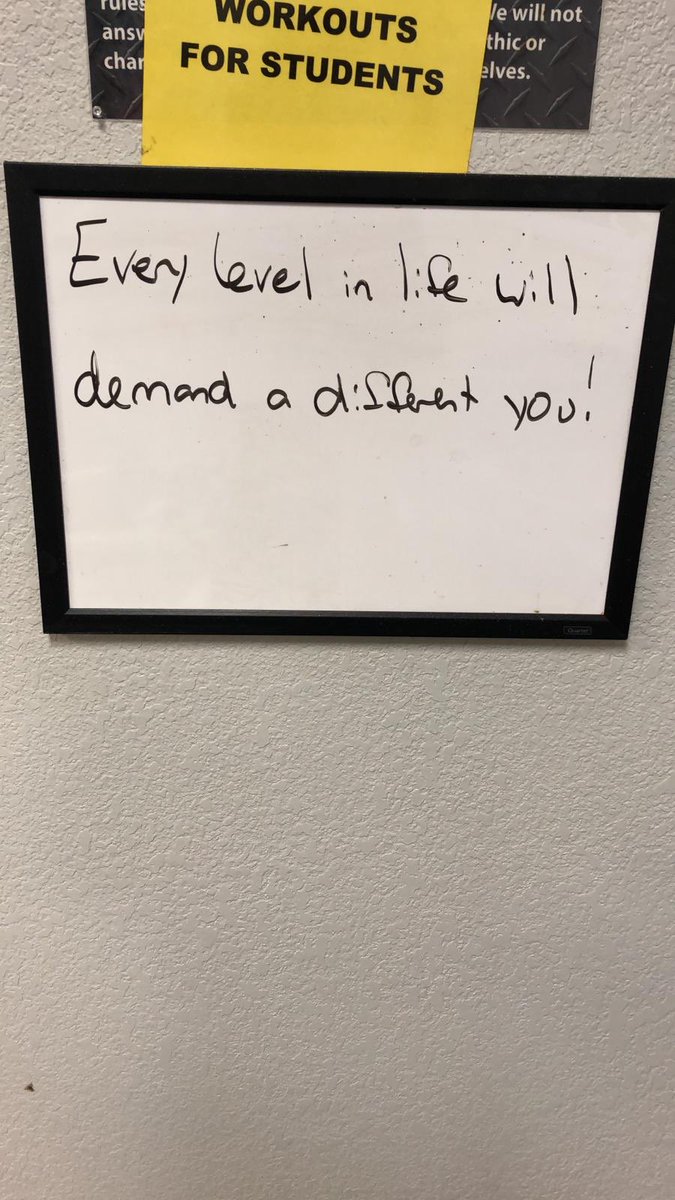 rules
We will not
answ
thic or
char
elves.
WORKOUTS
FOR STUDENTS
Every level in life will
demand a different you!
Quartet